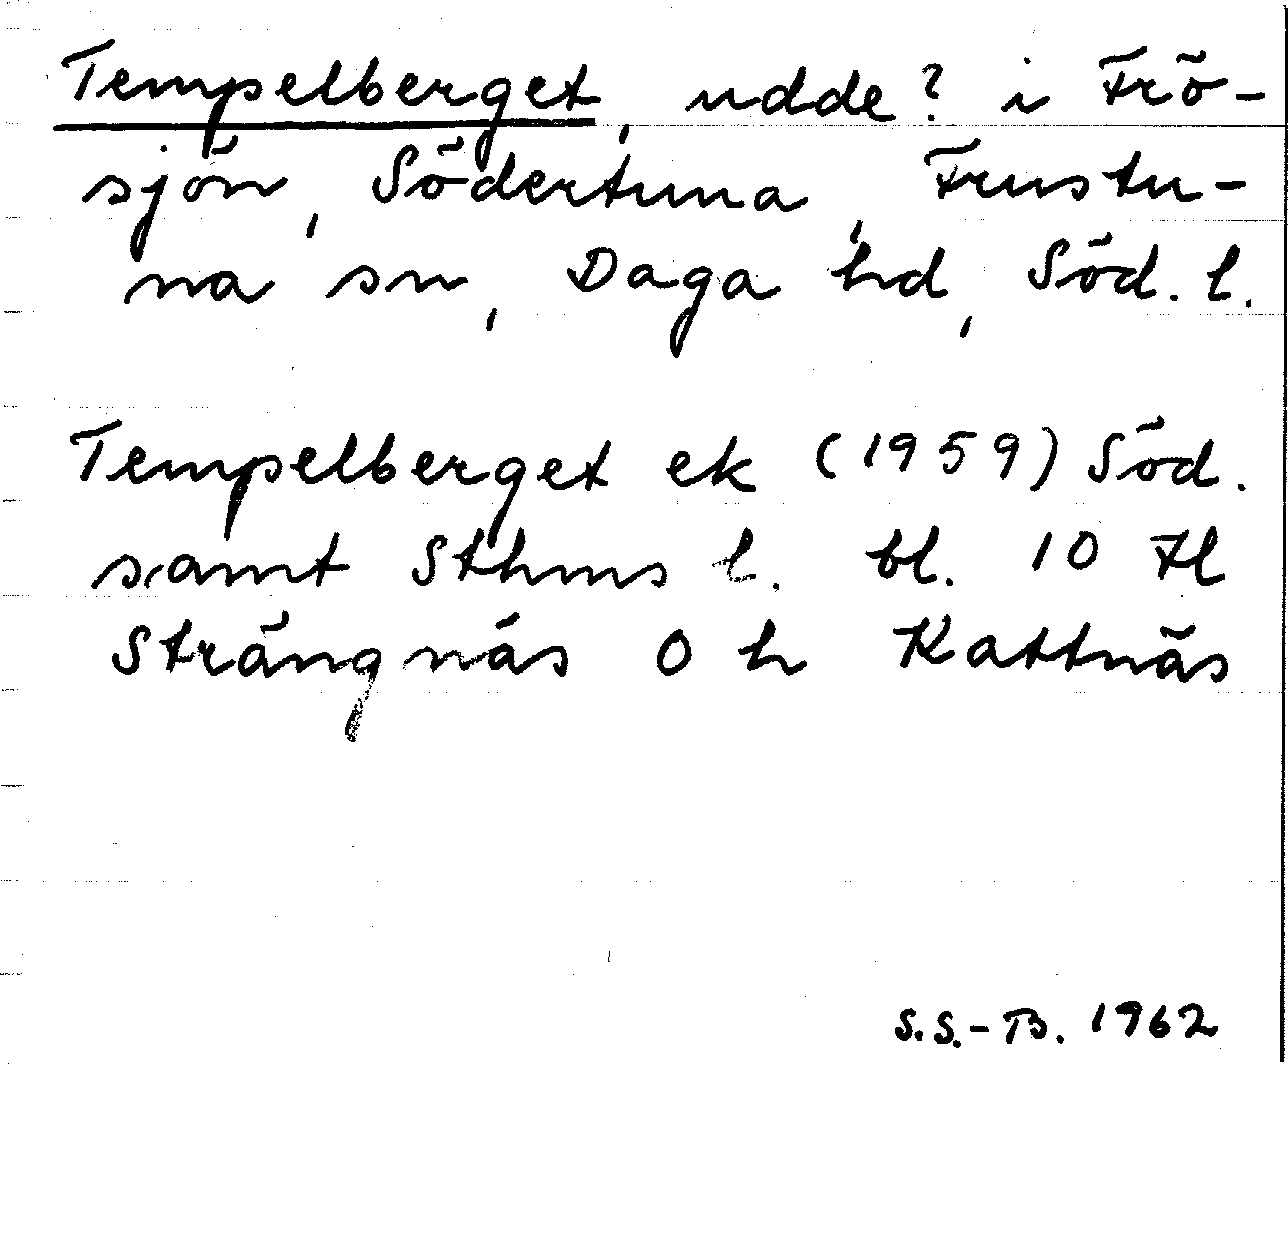 Tempelberget, udde? i Frö-
sjön, Södertuna, Frustu-
na sn, Daga hd, Söd. l.
Tempelberget ek (1959) Söd.
samt Sthms l. bl. 10 Fl
Strängnäs O h Kattnäs
S.S.-B. 1962